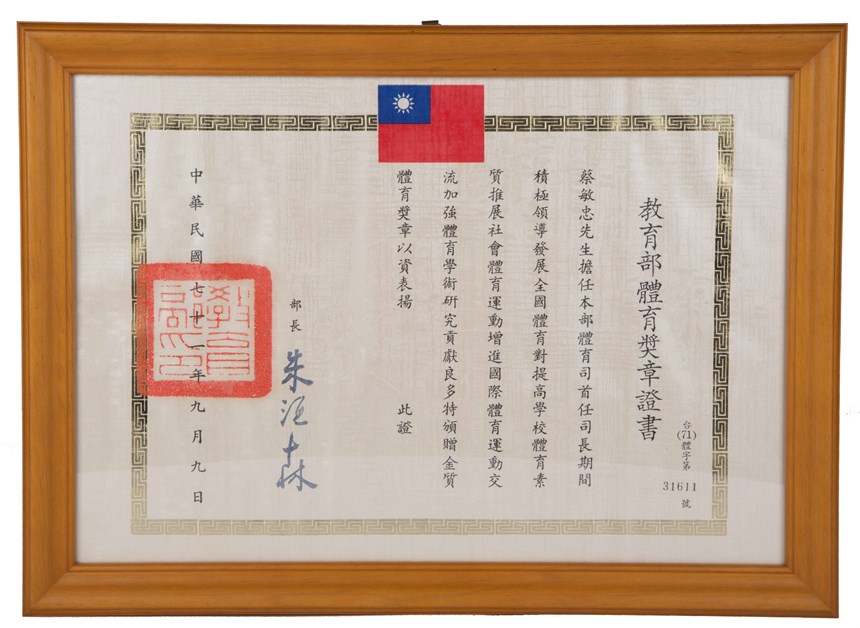 教育部體育獎章證書
台(71)體字第31611號
蔡敏忠先生擔任本部體育司首任司長期間
積極領導發展全國體育對提高學校體育素
質推展社會體育運動增進國際體育運動交
流加強體育學術研究貢獻良多特頒贈金質
體育獎章以資表揚 此證
部長 朱滙森
中華民國七十一年九月九日
教育部印